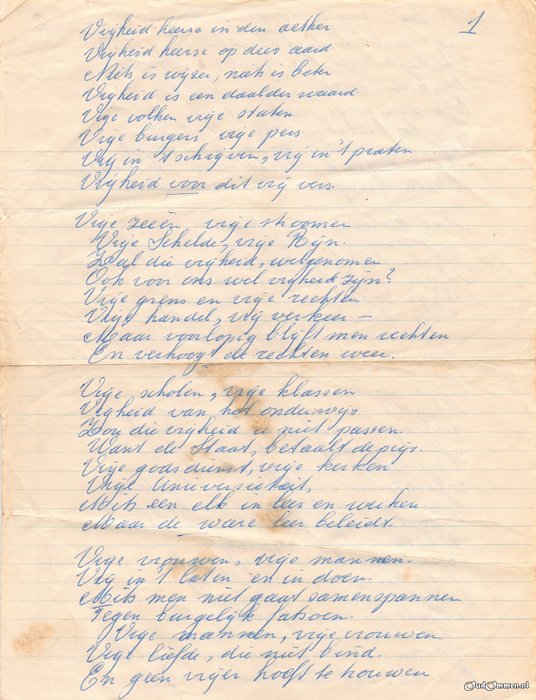 1
Vrijheid heerse in den aether
Vrijheid heerse op dees aard
Niets is wijzer, niets is beter
Vrijheid is een daalder waard
Vrije volken vrije staten
Vrije burgers vrije pers
Vrij in 't schrijven, vrij in 't praten
Vrijheid voor dit vrij vers.
Vrije zeeën, vrije stroomen
Vrije Schelde, vrije Rijn.
Zal die vrijheid, welgenomen
Ook voor ons wel vrijheid zijn?
Vrije grens en vrije rechten
Vrije handel, vrij verkeer –
Maar voorlopig blijft men vechten
En verhoogt de rechten weer.
Vrije scholen, vrije klassen
Vrijheid van het onderwijs
Zou die vrijheid u niet passen.
Want de Staat, betaalt de prijs.
Vrije godsdienst, vrije kerken
Vrije Universiteit,
Mits een elk in leer en werken
Maar de ware leer beleidt.
Vrije vrouwen, vrije mannen.
Vrij in 't laten en in doen.
Mits men niet gaat samenspannen
Tegen burgelijk fatsoen.
Vrije mannen, vrije vrouwen
Vrije liefde, die niet bind.
En geen vrijer hoeft te trouwen
OudOmmen.nl